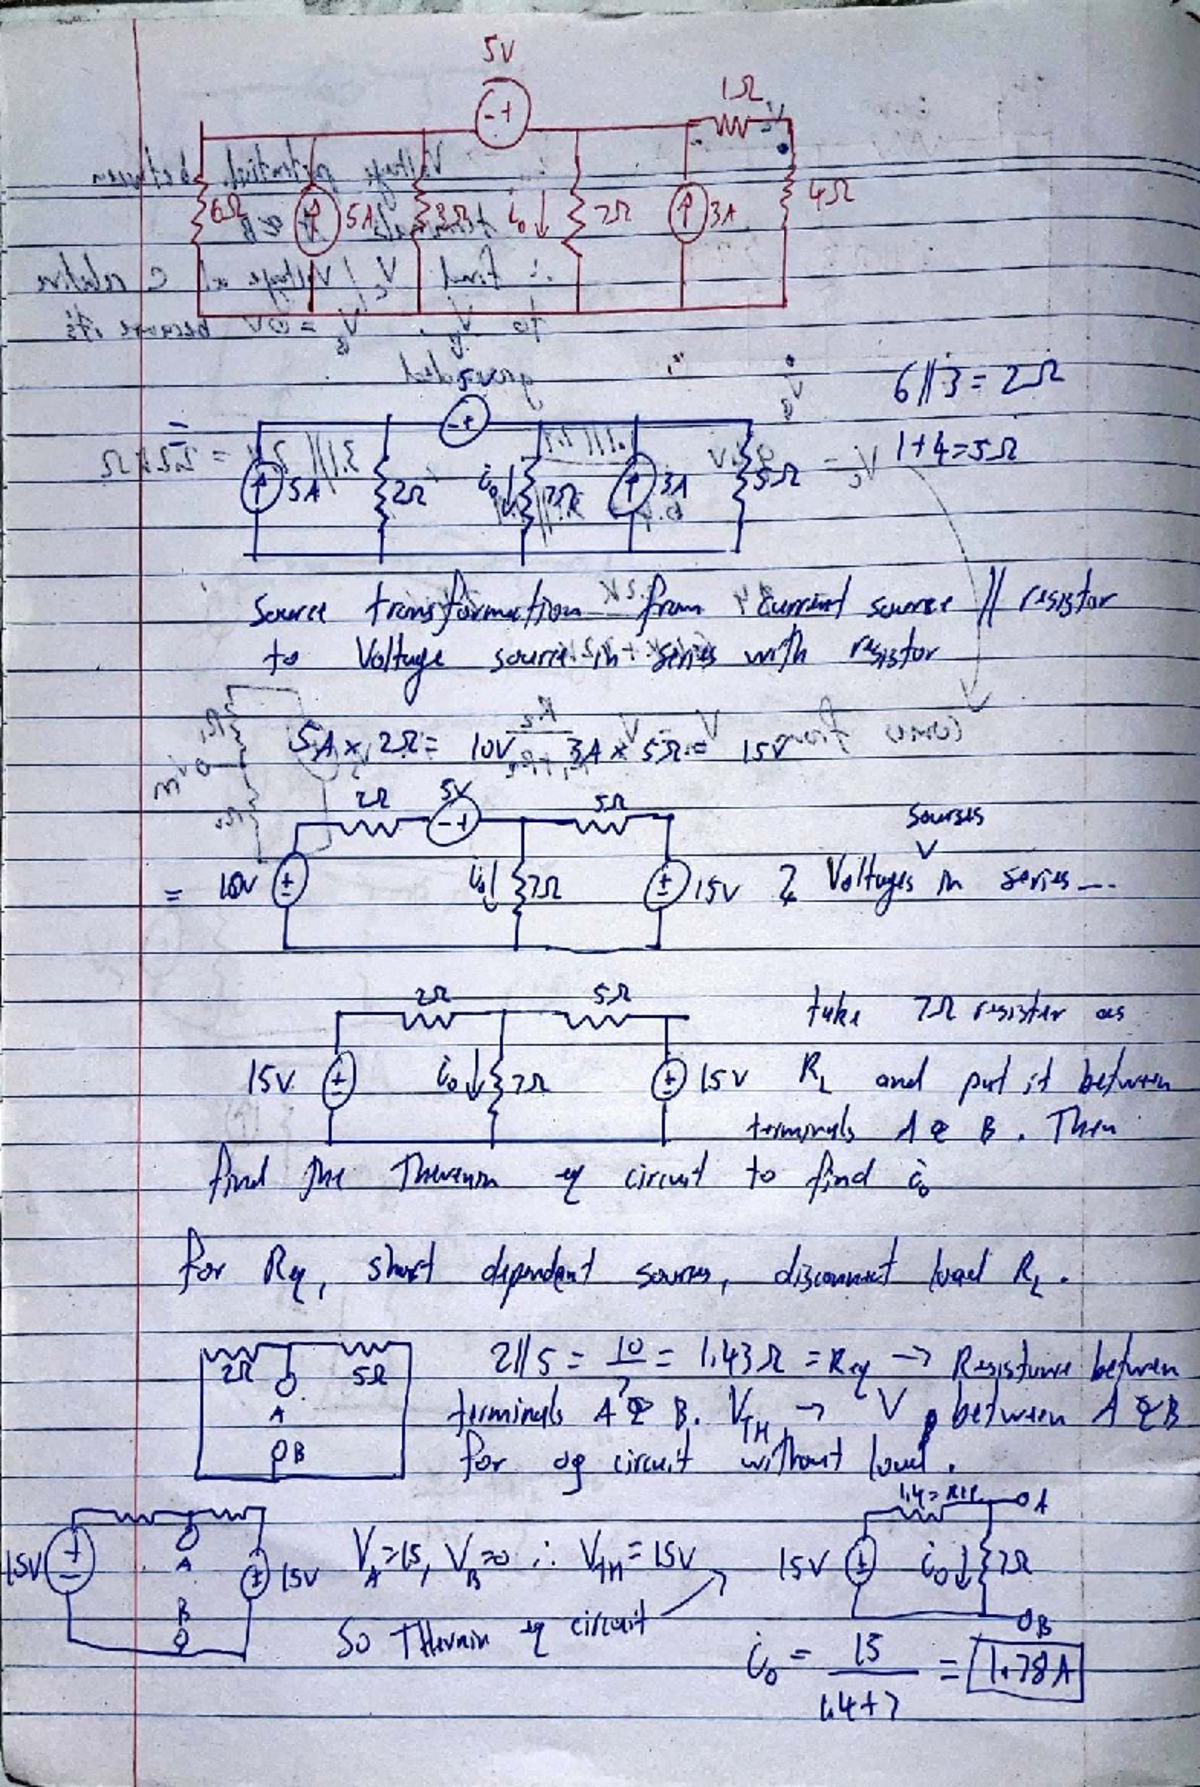 5V
- +
1Ω
6Ω 5A 3Ω i₀ 7Ω 3A 4Ω
6//3 = 2Ω
1+4=5Ω
- +
5A 2Ω i₀ 7Ω 3A 5Ω
Source transformation from current source // resistor
to Voltage source in series with resistor
5A × 2Ω = 10V 3A × 5Ω = 15V
2Ω 5V 5Ω
- +
sources
= 10V i₀ 7Ω 15V 2 Voltages in series ...
2Ω 5Ω take 7Ω resistor as
15V i₀ 7Ω 15V R_L and put it between
terminals A & B. Then
find the Thevenin eq circuit to find i₀
for Req, short dependent sources, disconnect load R_L.
2Ω 5Ω 2//5 = 10/7 = 1.43Ω = Req → Resistance between
A terminals A & B. V_TH → V between A & B
B for og circuit without load.
A
15V A 15V V_A=15, V_B=0 ∴ V_TH = 15V 15V i₀ 7Ω
B
So Thevnin eq circuit B
i₀ = 15/(1.4+7) = 1.78A